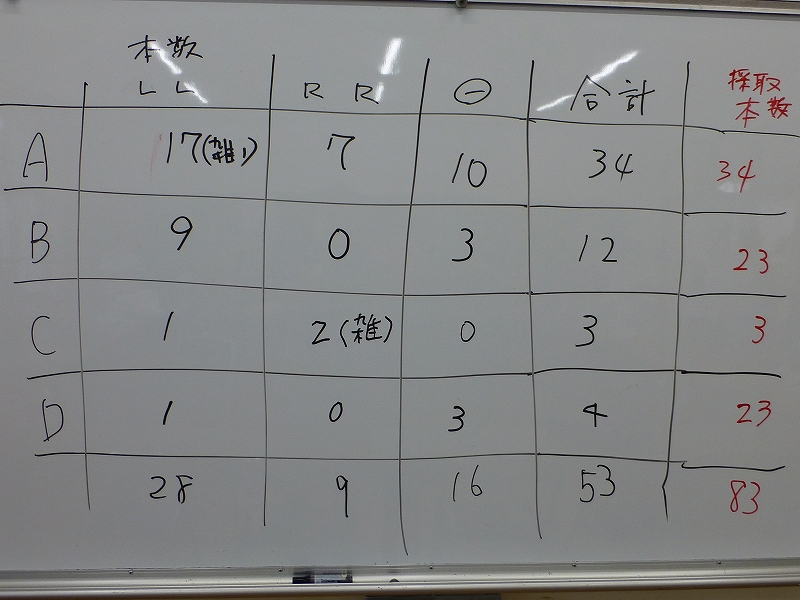 本数
LL RR ㊀ 合計 採取本数
A 17(雑1) 7 10 34 34
B 9 0 3 12 23
C 1 2(雑) 0 3 3
D 1 0 3 4 23
28 9 16 53 83